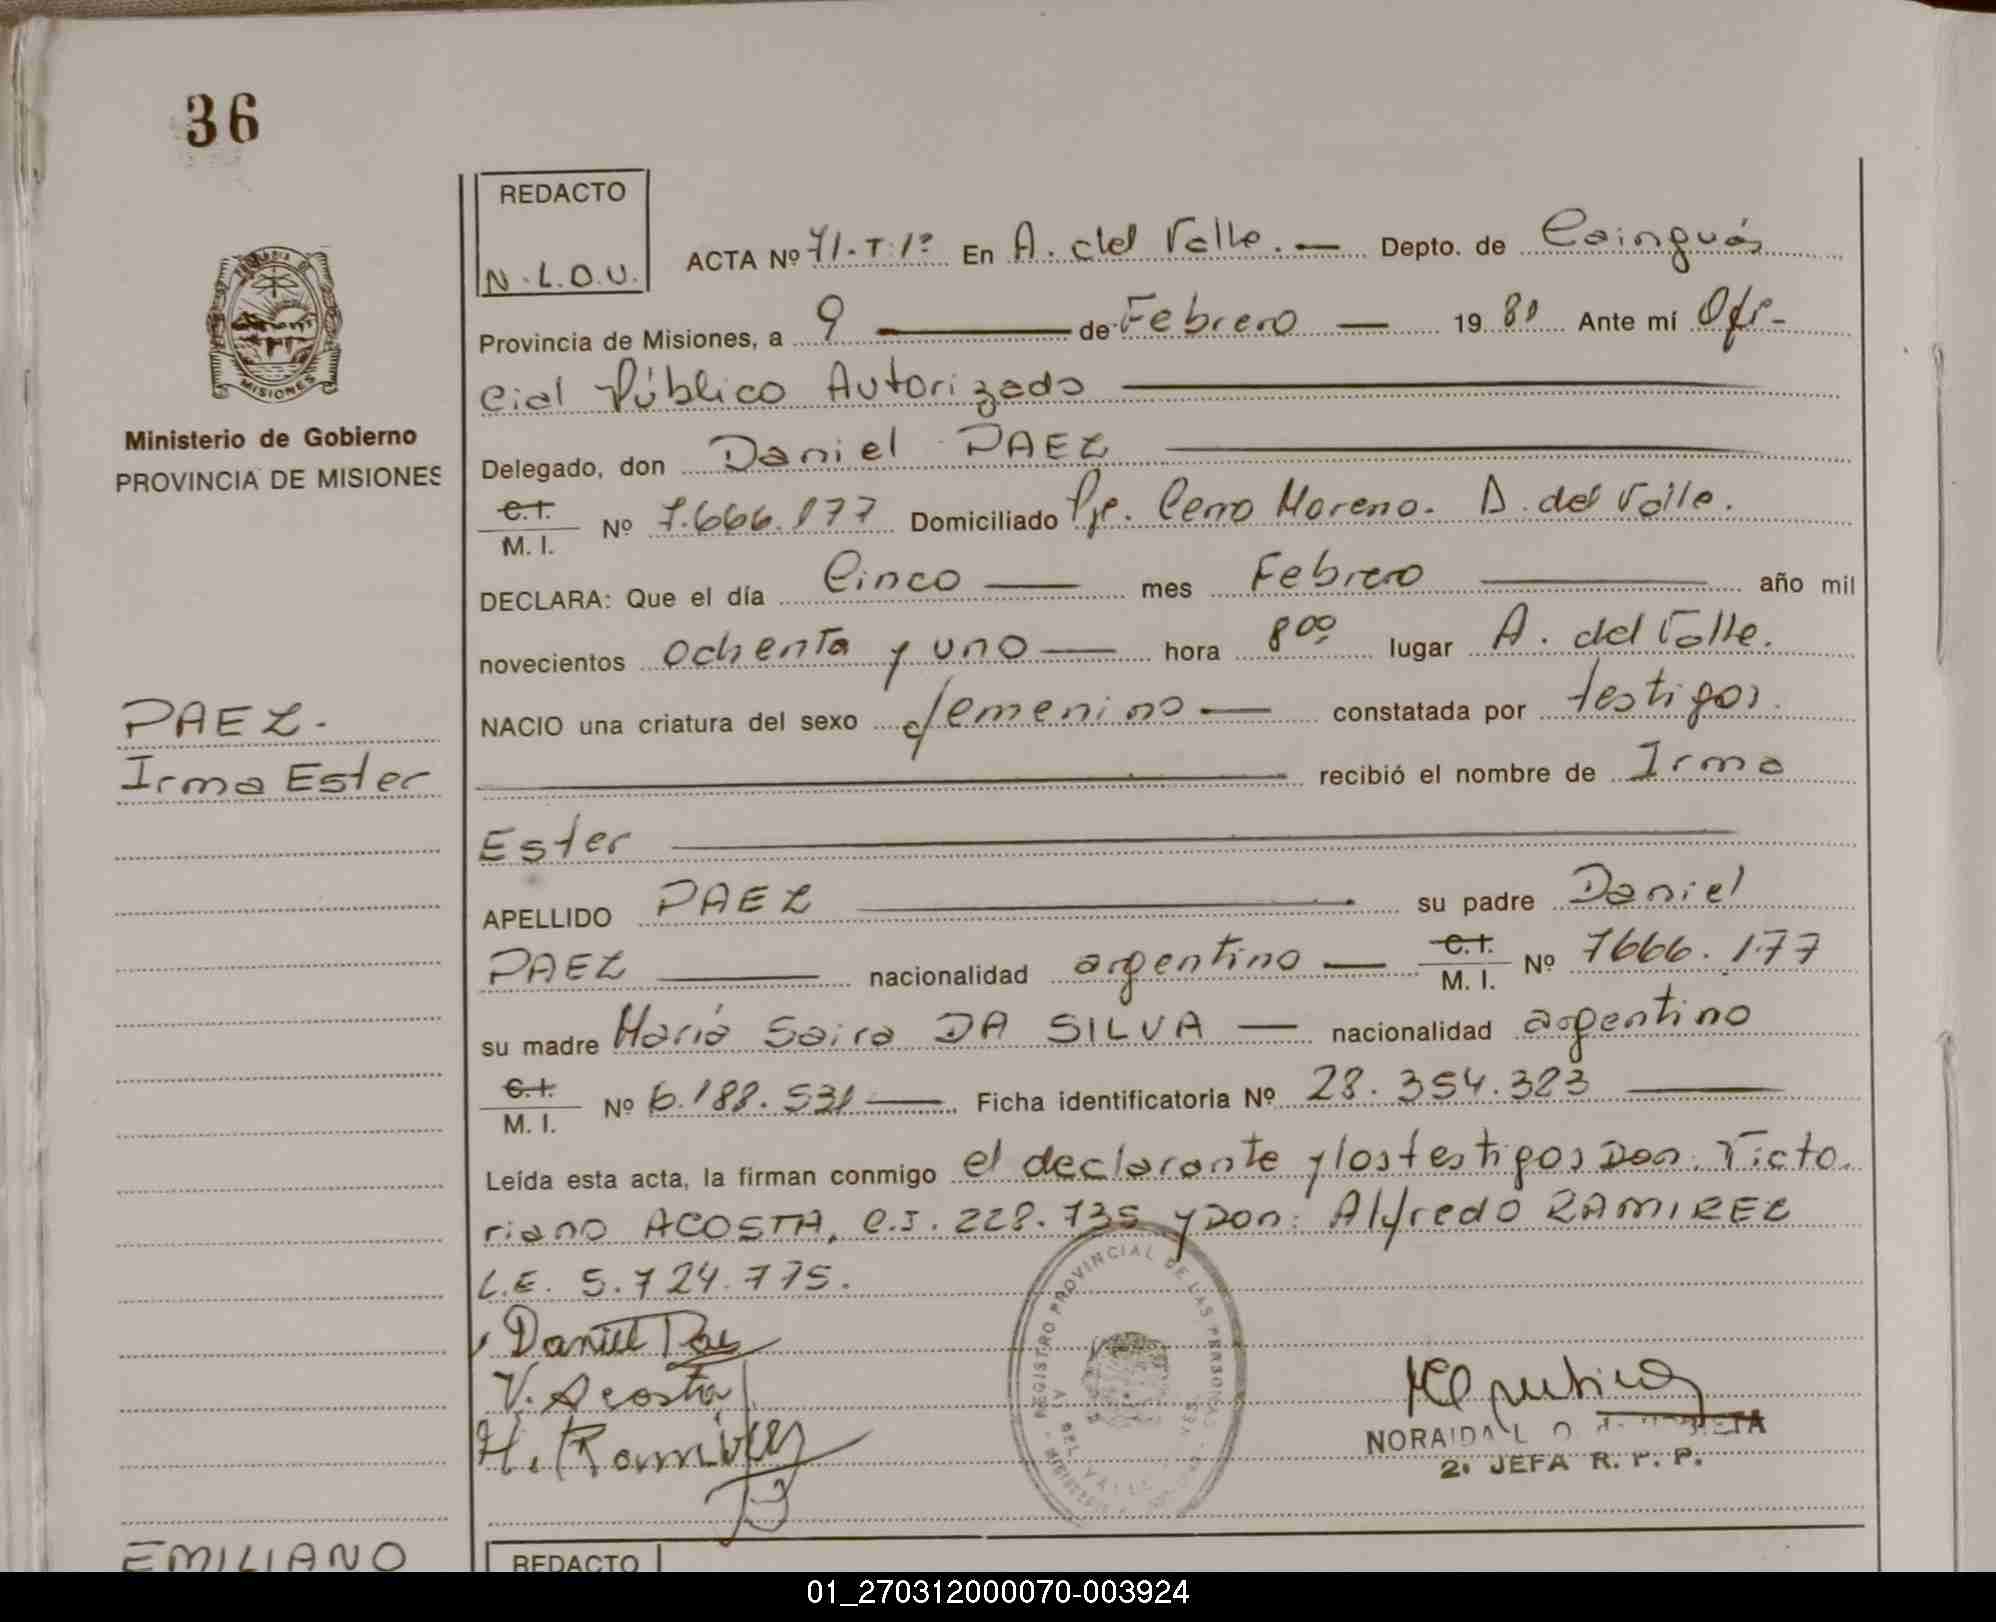 36
REDACTO
N.L.O.U.
ACTA Nº 71.T.1º En A. del Valle. — Depto. de Cainguás
Provincia de Misiones, a 9 — de Febrero — 1981 Ante mí Ofi-
cial Público Autorizado
MISIONES
Ministerio de Gobierno
PROVINCIA DE MISIONES
Delegado, don Daniel PAEZ
C.I.
M. I. Nº 7.666.177 Domiciliado Pje. Cerro Moreno. A. del Valle.
DECLARA: Que el día Cinco — mes Febrero — año mil
novecientos ochenta y uno — hora 8 00 lugar A. del Valle.
PAEZ.
Irma Ester
NACIO una criatura del sexo femenino — constatada por testigos.
recibió el nombre de Irma
Ester
APELLIDO PAEZ — su padre Daniel
PAEZ — nacionalidad argentino — C.I. M. I. Nº 7666.177
su madre María Saira DA SILVA — nacionalidad argentino
C.I.
M. I. Nº 6.188.531 — Ficha identificatoria Nº 28.354.323
Leída esta acta, la firman conmigo el declarante y los testigos Don. Victo.
riano ACOSTA, C.I. 228.735 y Don: Alfredo RAMIREZ
L.E. 5.724.775.
Daniel Paez
V. Acosta
H. Ramirez
REGISTRO PROVINCIAL DE LAS PERSONAS
DEL VALLE
NORAIDA L
2. JEFA R. P. P.
EMILIANO
REDACTO
01_270312000070-003924